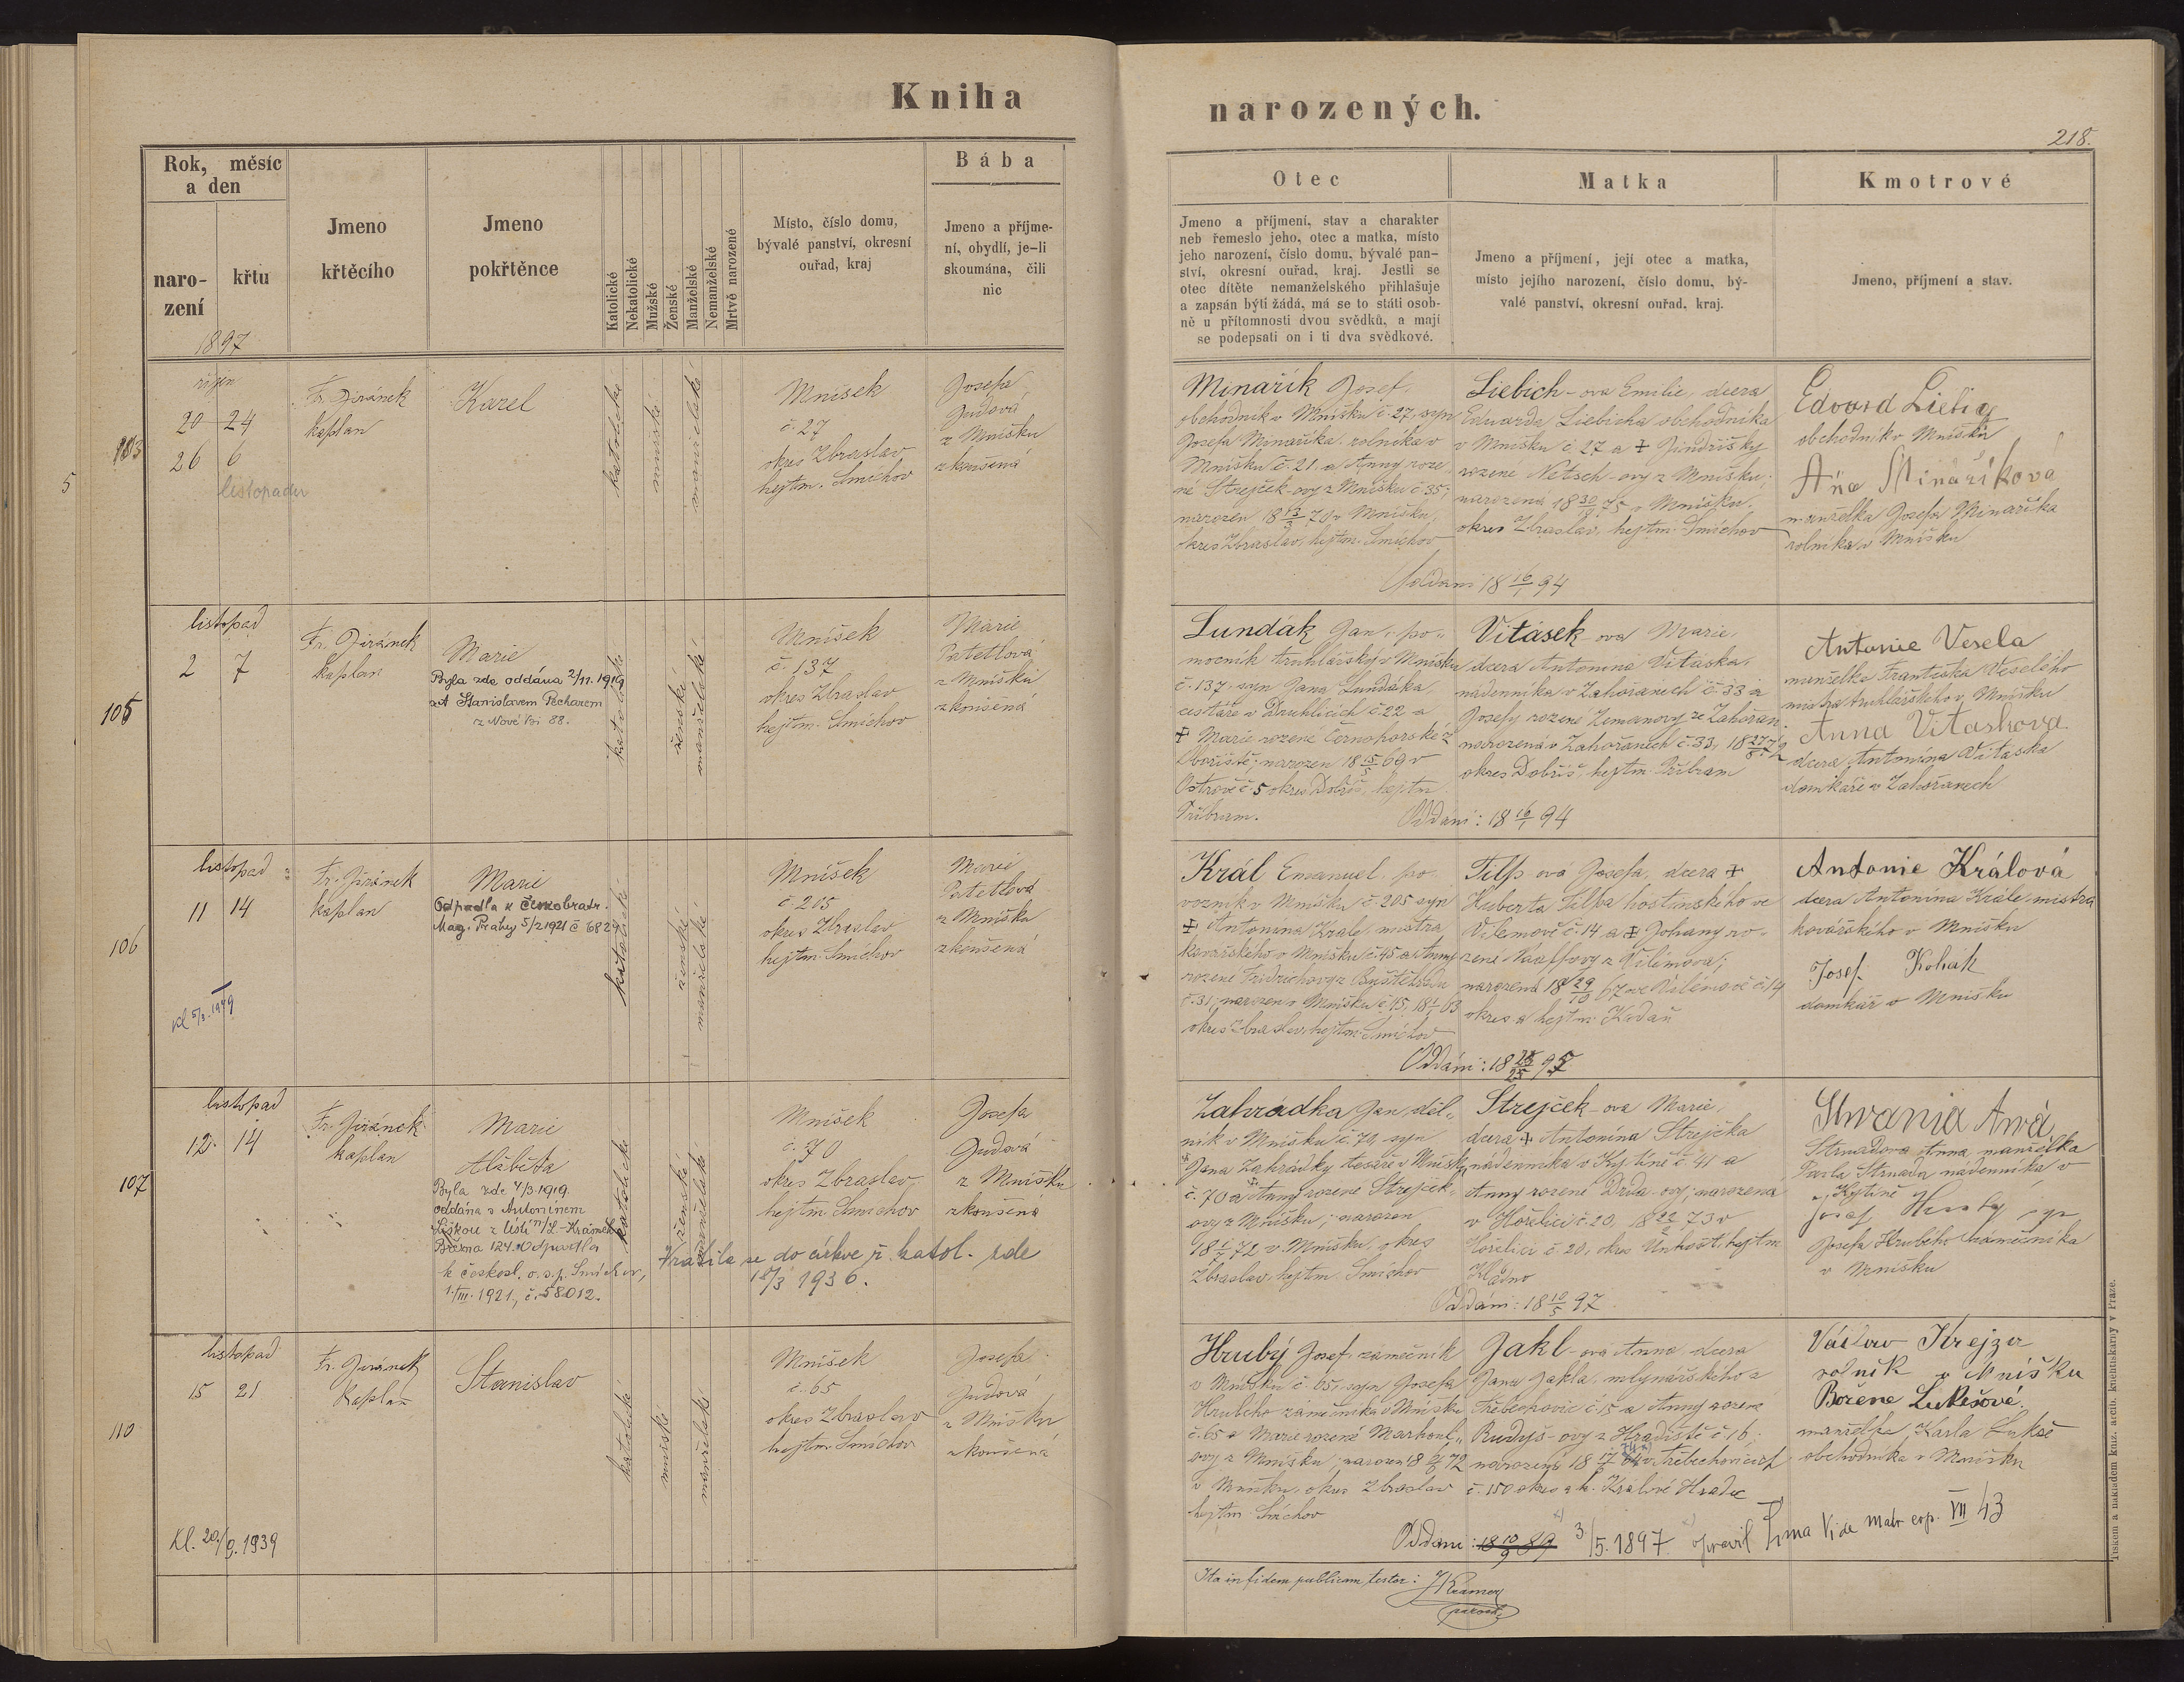 Kniha
narozených.
218.
Rok, měsíc
a den
naro-
zení
křtu
1897
Jmeno
křtěcího
Jmeno
pokřtěnce
Katolické
Nekatolické
Mužské
Ženské
Manželské
Nemanželské
Mrtvě narozené
Místo, číslo domu,
bývalé panství, okresní
ouřad, kraj
Bába
Jmeno a příjme-
ní, obydlí, je-li
skoumána, čili
nic
Otec
Jmeno a příjmení, stav a charakter
neb řemeslo jeho, otec a matka, místo
jeho narození, číslo domu, bývalé pan-
ství, okresní ouřad, kraj. Jestli se
otec dítěte nemanželského přihlašuje
a zapsán býti žádá, má se to státi osob-
ně u přítomnosti dvou svědků, a mají
se podepsati on i ti dva svědkové.
Matka
Jmeno a příjmení, její otec a matka,
místo jejího narození, číslo domu, bý-
valé panství, okresní ouřad, kraj.
Kmotrové
Jmeno, příjmení a stav.
5
říjen
20 24
26 6
listopadu
Fr. Jiránek
kaplan
Karel
katolické
mužské
manželské
Mníšek
č. 27
okres Zbraslav
hejtm. Smíchov
Josefa
Judová
z Mníšku
zkoušená
Minařík Josef,
obchodník v Mníšku č. 27, syn
Josefa Minaříka, rolníka v
Mníšku č. 21 a Anny roze-
né Strejček-ovy z Mníšku č. 35;
narozen 18 13/3 70 v Mníšku,
okres Zbraslav, hejtm. Smíchov
Liebich-ova Emilie, dcera
Eduarda Liebicha obchodníka
v Mníšku č. 27 a + Jindřišky
rozené Netsch-ovy z Mníšku;
narozená 18 30/10 75 v Mníšku,
okres Zbraslav, hejtm. Smíchov
Oddáni 18 16/1 94
Edvard Liebig
obchodník v Mníšku
Ana Minaříková
manželka Josefa Minaříka
rolníka v Mníšku
105
listopad
2 7
Fr. Jiránek
kaplan
Marie
Byla zde oddána 2/11. 1919
se Stanislavem Pecharem
z Nové Vsi 88.
katolické
ženské
manželské
Mníšek
č. 137
okres Zbraslav
hejtm. Smíchov
Marie
Patetlová
z Mníšku
zkoušená
Lundák Jan, po-
mocník truhlářský v Mníšku
č. 137, syn Jana Lundáka,
cestáře v Druhlicích č. 22 a
+ Marie rozené Černohorské z
Obořiště; narozen 18 15/5 69 v
Ostrově č. 5 okres Dobříš, hejtm
Příbram.
Vitásek-ova Marie,
dcera Antonína Vitáska,
nádenníka v Zahořanech č. 33 a
Josefy rozené Zemanovy ze Zahořan
narozená v Zahořanech č. 33, 18 27/8 72
okres Dobříš, hejtm. Příbram
Oddáni: 18 16/1 94
Antonie Vesela
manželka Františka Veselého
mistra truhlářského v Mníšku
Anna Vitaskova
dcera Antonína Vitáska
domkáře v Zahořanech
106
listopad
11 14
Kl 5/3. 1949
Fr. Jiránek
kaplan
Marie
Odpadla k Českobratr.
Mag. Prahy 5/2 1921 č 6829
katolické
ženské
manželské
Mníšek
č. 205
okres Zbraslav
hejtm. Smíchov
Marie
Patetlová
z Mníšku
zkoušená
Král Emanuel, po-
vozník v Mníšku č. 205 syn
+ Antonína Krále, mistra
kovářského v Mníšku č. 45 a Anny
rozené Fridrichovy z Buštěhradu
č. 31; narozen v Mníšku č. 45, 18 1/1 63
okres Zbraslav, hejtm. Smíchov
Tilp-ová Josefa, dcera +
Huberta Tilpa hostinského ve
Vilémově č. 14 a + Johany ro-
zené Naaffovy z Vilémova;
narozená 18 29/10 67 ve Vilémově č. 14
okres a hejtm. Kadaň
Oddáni: 18
Antonie Králová
dcera Antonína Krále, mistra
kovářského v Mníšku
Josef Kohak
domkář v Mníšku
107
listopad
12. 14
Fr. Jiránek
kaplan
Marie
Alžběta
Byla zde 4/3. 1919.
oddána s Antonínem
Liškou z Ústí n/L.-Krásné
Března 124. Odpadla
k českosl. o. s. p. Smíchov,
1./III. 1921, č. 58012.
katolické
ženské
manželské
Vrátila se do církve ř. katol. zde
18/3 1936.
Mníšek
č. 70
okres Zbraslav
hejtm. Smíchov
Josefa
Judová
z Mníšku
zkoušená
Zahrádka Jan, děl-
ník v Mníšku č. 70, syn
Jana Zahrádky tesaře v Mníšku
č. 70 a Anny rozené Strejček-
ovy z Mníšku; narozen
18 1/7 72 v Mníšku, okres
Zbraslav, hejtm. Smíchov
Strejček-ova Marie,
dcera + Antonína Strejčka
nádenníka v Kytíně č. 41 a
Anny rozené Drda-ovy; narozená
v Hořelici č. 20, 18 22/2 73 v
Hořelici č. 20, okres Unhošť, hejtm
Kladno
Oddáni: 18 10/5 97
Strnadova Anna, manželka
Pavla Strnada, nádenníka v
Kytíně
Josef Hruby syn
Josefa Hrubého zámečníka
v Mníšku
110
listopad
15 21
Kl. 20/9. 1939
Fr. Jiránek
kaplan
Stanislav
katolické
mužské
manželské
Mníšek
č. 65
okres Zbraslav
hejtm. Smíchov
Josefa
Judová
z Mníšku
zkoušená
Hrubý Josef, zámečník
v Mníšku č. 65, syn Josefa
Hrubého zámečníka v Mníšku
č. 65 a Marie rozené Marhoul-
ovy z Mníšku; narozen 18 72
v Mníšku, okres Zbraslav
hejtm. Smíchov
Jakl-ová Anna, dcera
Jana Jakla, mlynářského z
Třebechovic č. 15 a Anny rozené
Rudyš-ovy z Hradiště č. 16;
narozená 18 v Třebechovicích
č. 150 okres a h. Králové Hradec
Oddáni: 18 10/9 89 3/5. 1897. opravil Vide matr exp. VII 43
Václav Krejza
rolník v Mníšku
Božena Lukešová
manželka Karla Lukše
obchodníka v Mníšku
Ita in fidem publicam testor: Kramer
parochus
Tiskem a nákladem kníž. arcib. knihtiskárny v Praze.